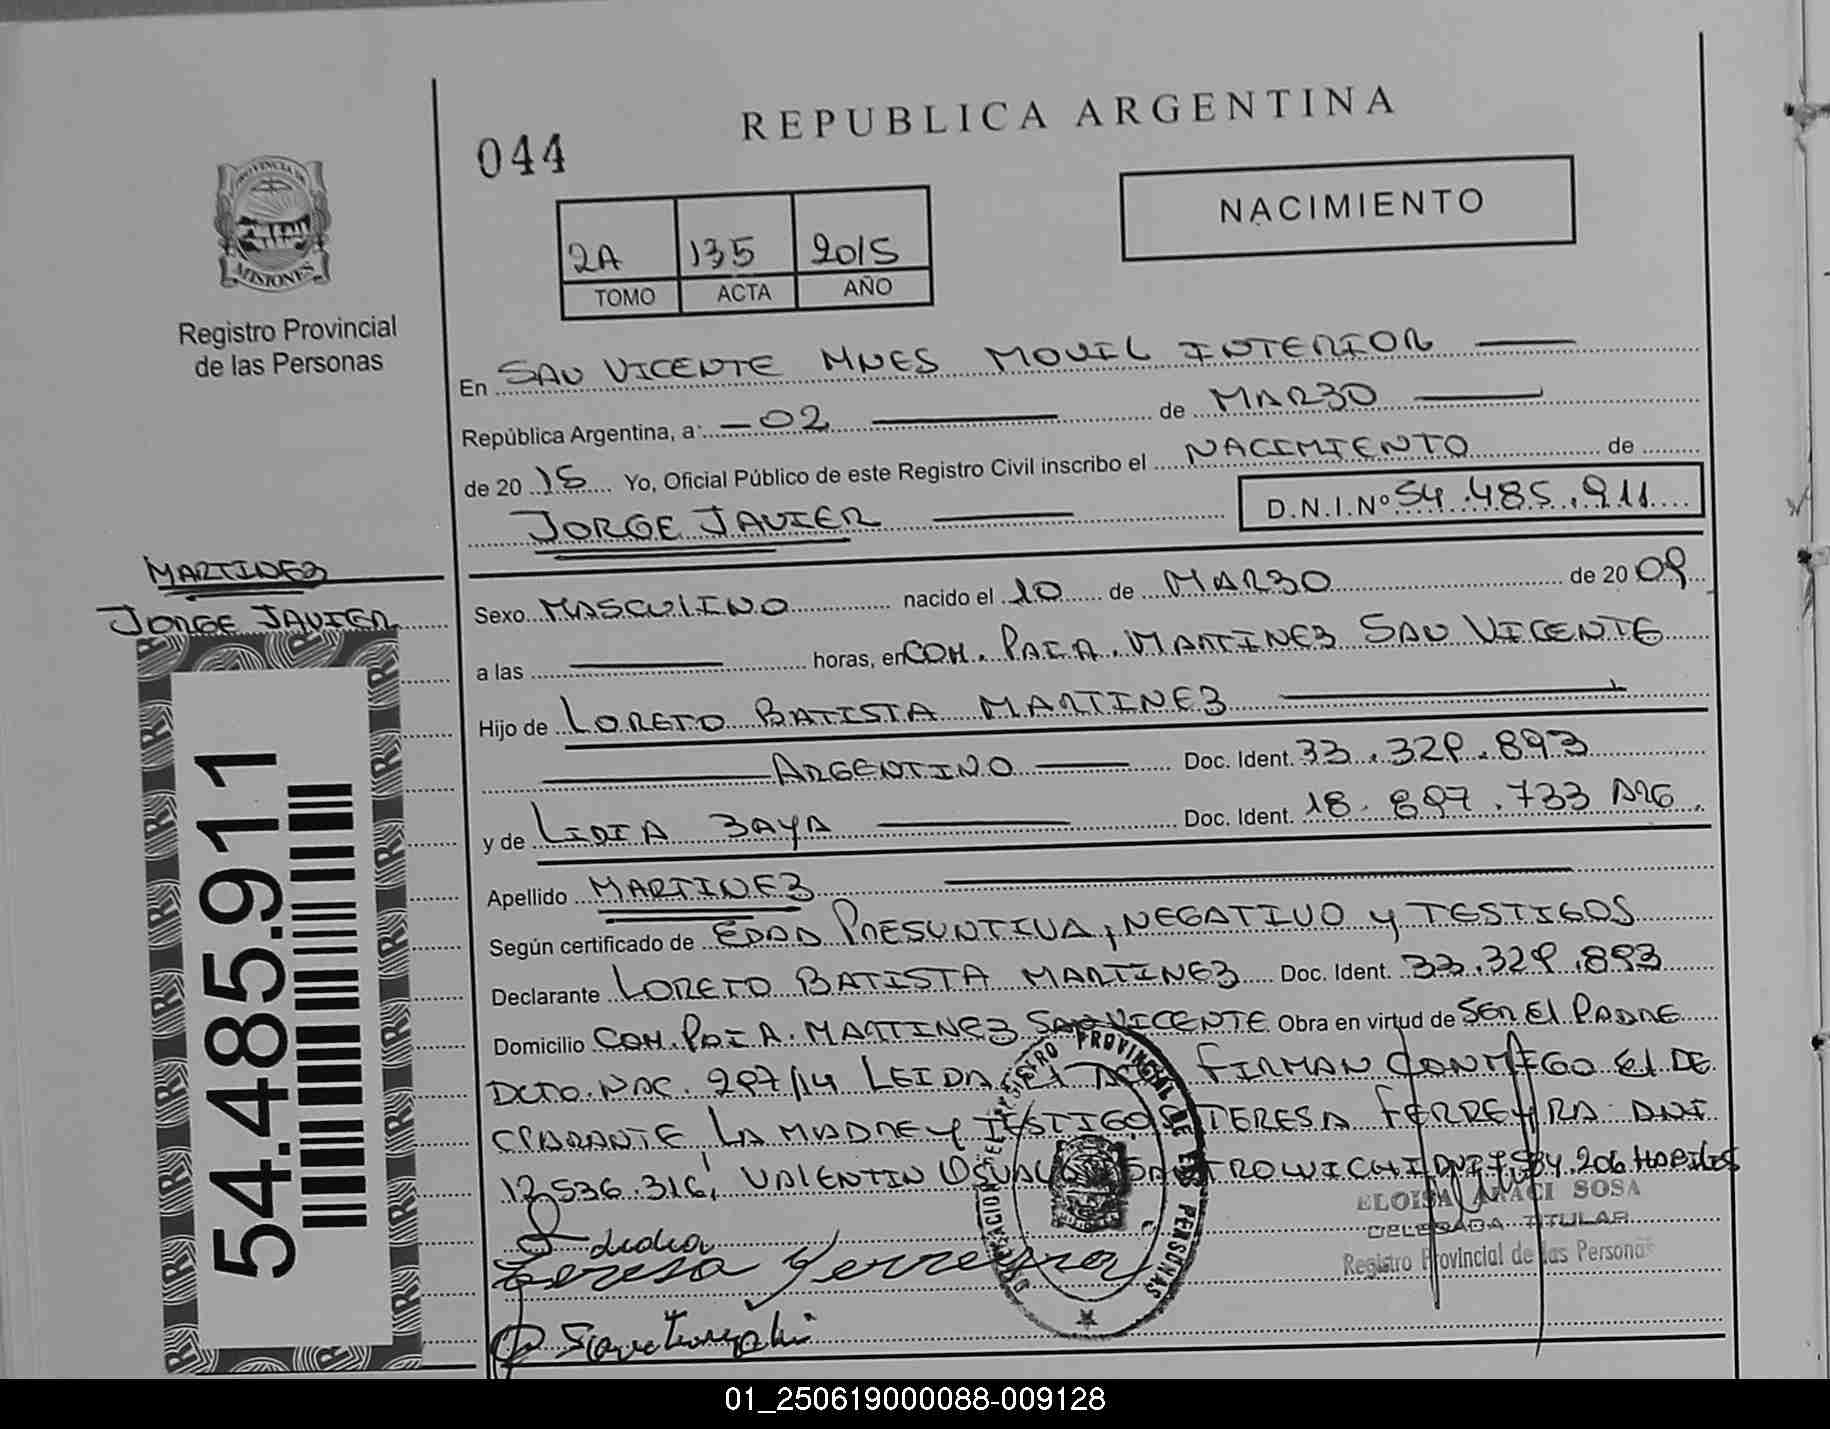 REPUBLICA ARGENTINA
044
NACIMIENTO
2A 135 2015
TOMO ACTA AÑO
PROVINCIA DE
MISIONES
Registro Provincial
de las Personas
En SAN VICENTE MNES MOVIL INTERIOR
República Argentina, a: 02 de MARZO
de 20 15 Yo, Oficial Público de este Registro Civil inscribo el NACIMIENTO de
JORGE JAVIER D.N.I.Nº 54.485.911
MARTINEZ
JORGE JAVIER
Sexo MASCULINO nacido el 10 de MARZO de 20 09
a las horas, en COM. PAI A. MARTINEZ SAN VICENTE
Hijo de LORETO BATISTA MARTINEZ
ARGENTINO Doc. Ident. 33.329.893
y de LIDIA ZAYA Doc. Ident. 18.897.733 ARG
Apellido MARTINEZ
Según certificado de EDAD PRESUNTIVA, NEGATIVO y TESTIGOS
Declarante LORETO BATISTA MARTINEZ Doc. Ident. 33.329.893
Domicilio COM. PAI A. MARTINEZ SAN VICENTE Obra en virtud de SER El PADRE
DCTO. NAC. 297/14 LEIDA El FIRMAN CONMIGO El DE
CLARANTE LA MADRE y TESTIGO TERESA FERREYRA DNI
12.536.316, VALENTIN HABILES
ELOISA ARACI SOSA
DELEGADA TITULAR
Registro Provincial de las Personas
Lidia
Teresa Ferreyra
54.485.911
01_250619000088-009128